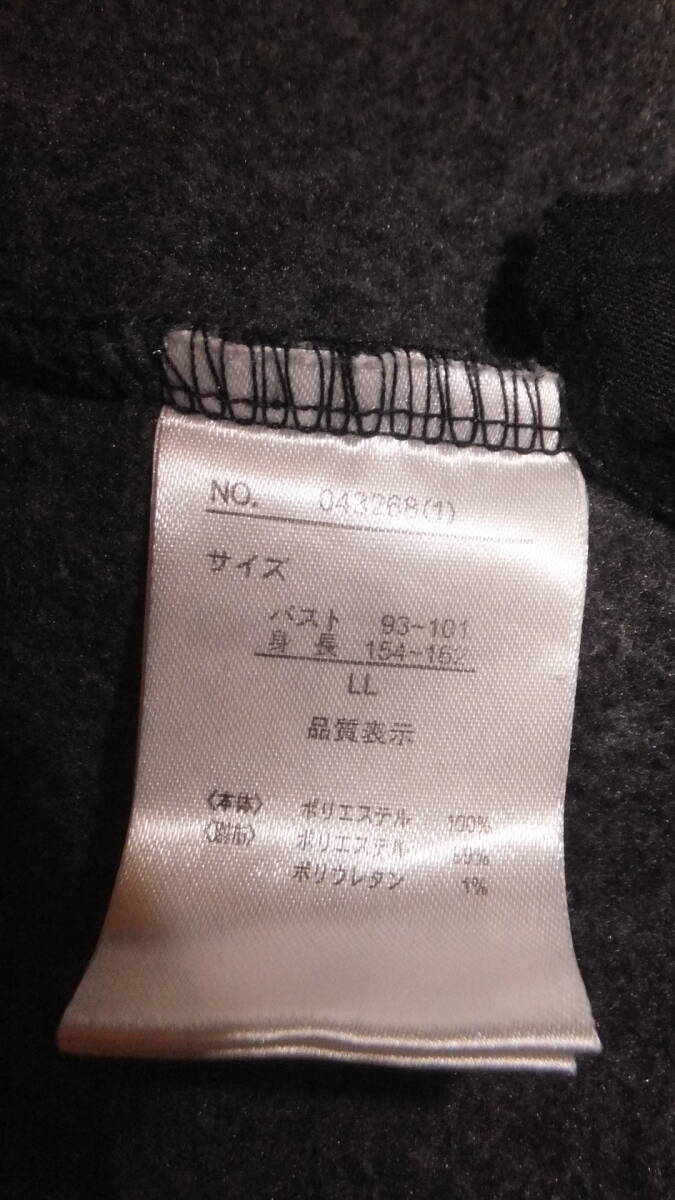 NO. 043268(1)
サイズ
バスト 93~101
身長 154~162
LL
品質表示
〈本体〉 ポリエステル 100%
〈別布〉 ポリエステル 99%
ポリウレタン 1%